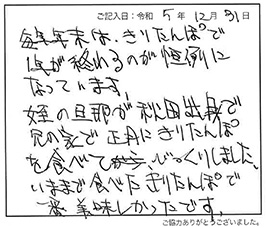 ご記入日：令和 5 年 12 月 31 日
毎年年末は、きりたんぽで
〆が終れるのが恒例に
なっています。
姪の旦那が秋田出身で
兄の家で正月にきりたんぽ
を食べて びっくりしました。
いままで食べたきりたんぽで
一番美味しかったです。
ご協力ありがとうございました。